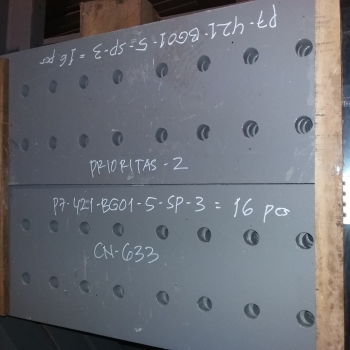 P7-421-BG01-5-SP-3 = 16 pcs
PRIORITAS - 2
P7-421-BG01-5-SP-3 = 16 pcs
CN-633